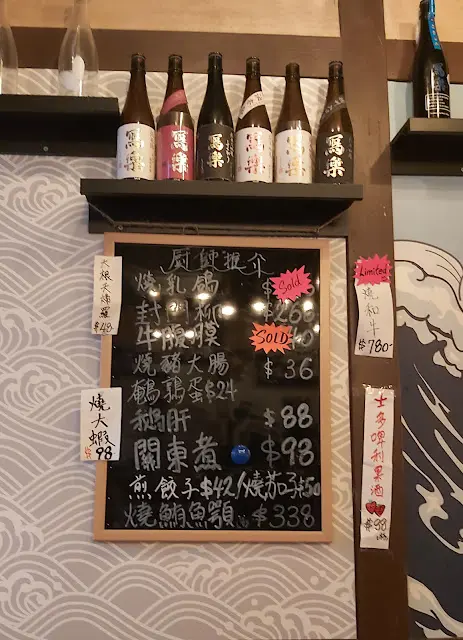 寫樂
寫樂
寫樂
寫樂
寫樂
寫樂
大根天婦羅
$48-
廚師推介
燒乳鴿 $
Sold
封門柳 $268
牛腹膜
SOLD
燒豬大腸 $36
鵪鶉蛋$24
鵝肝 $88
關東煮 $98
煎餃子$42/燒茄子$50
燒鯛魚顎 $338
燒大蝦
$98
Limited
燒和牛
$780-
士多啤利果酒
$98